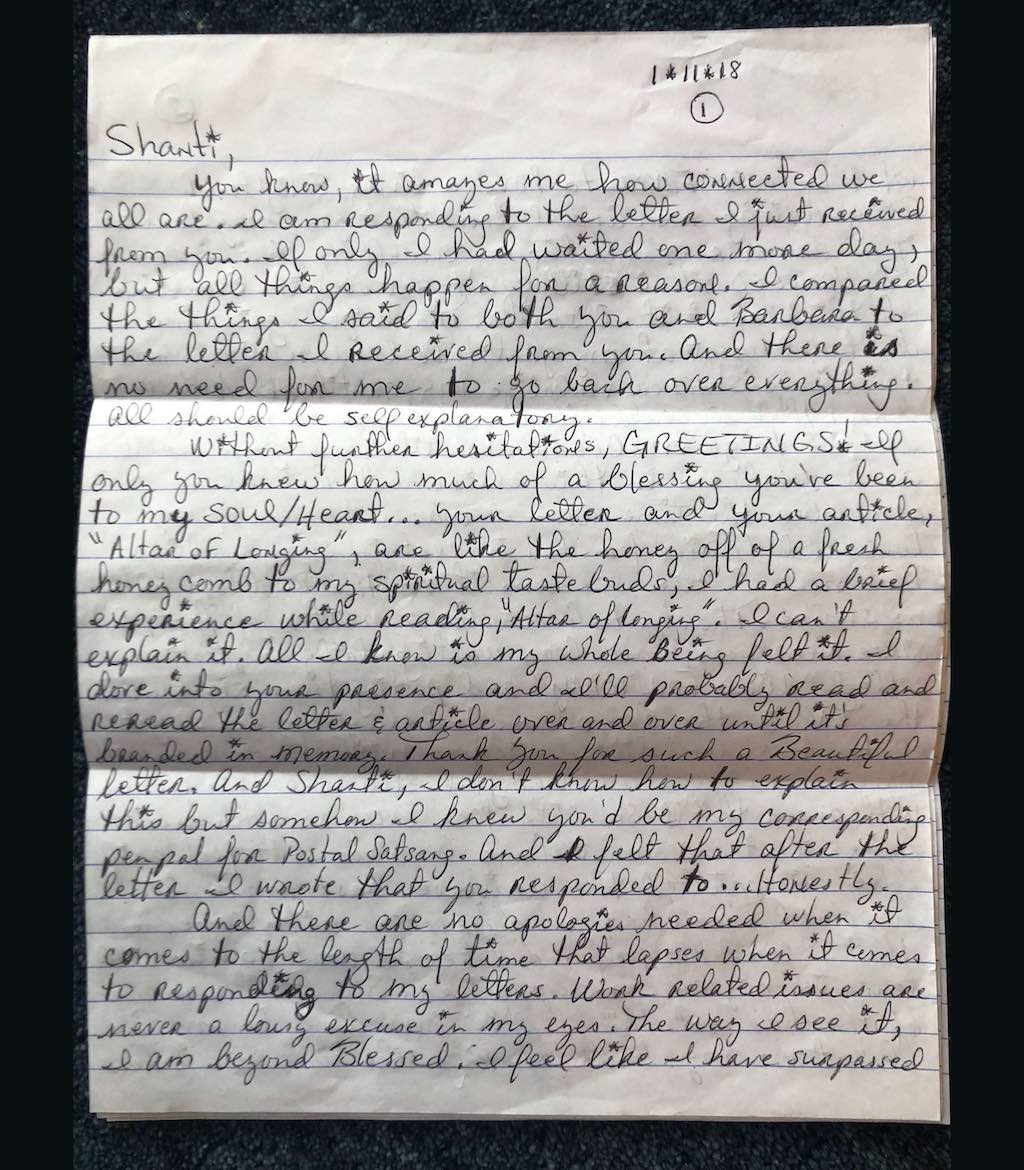 1*11*18
1
Shanti,
You know, it amazes me how connected we
all are. I am responding to the letter I just received
from you. If only I had waited one more day,
but all things happen for a reason. I compared
the things I said to both you and Barbara to
the letter I received from you. And there is
no need for me to go back over everything.
All should be self explanatory.
Without further hesitations, GREETINGS! If
only you knew how much of a blessing you've been
to my soul/Heart... your letter and your article,
"Altar of Longing", are like the honey off of a fresh
honey comb to my spiritual taste buds, I had a brief
experience while reading, "Altar of Longing". I can't
explain it. All I know is my whole Being felt it. I
dove into your presence and I'll probably read and
reread the letter & article over and over until it's
branded in memory. Thank you for such a Beautiful
letter. And Shanti, I don't know how to explain
this but somehow I knew you'd be my corresponding
penpal for Postal Satsang. And I felt that after the
letter I wrote that you responded to... Honestly.
And there are no apologies needed when it
comes to the length of time that lapses when it comes
to responding to my letters. Work related issues are
never a lousy excuse in my eyes. The way I see it,
I am beyond Blessed. I feel like I have surpassed